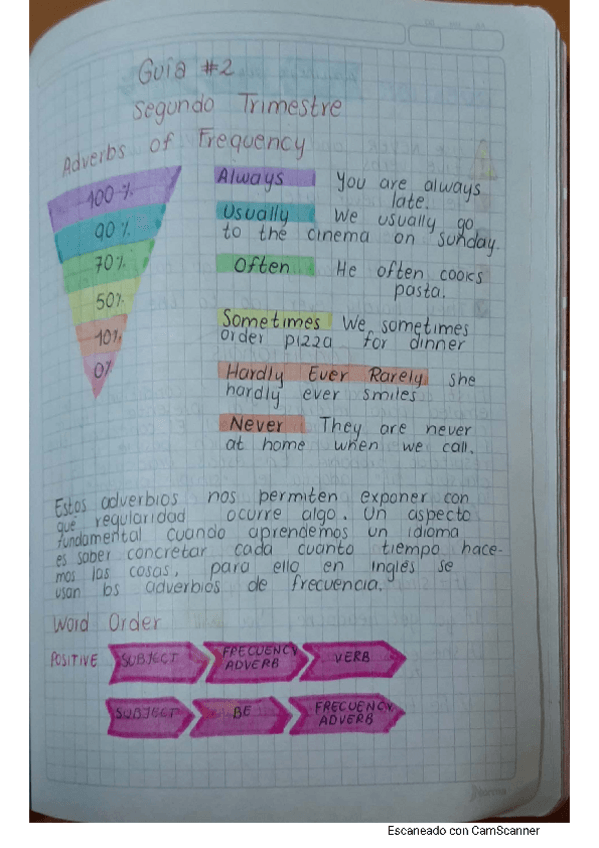 Guía #2
Segundo Trimestre
Adverbs of Frequency
100%
90%
70%
50%
10%
0%
Always You are always
late.
Usually We usually go
to the cinema on sunday.
Often He often cooks
pasta.
Sometimes We sometimes
order pizza for dinner
Hardly Ever Rarely she
hardly ever smiles
Never They are never
at home when we call.
Estos adverbios nos permiten exponer con
qué regularidad ocurre algo. Un aspecto
fundamental cuando aprendemos un idioma
es saber concretar cada cuanto tiempo hace-
mos las cosas, para ello en inglés se
usan los adverbios de frecuencia.
Word Order
POSITIVE SUBJECT FRECUENCY ADVERB VERB
SUBJECT BE FRECUENCY ADVERB
Escaneado con CamScanner